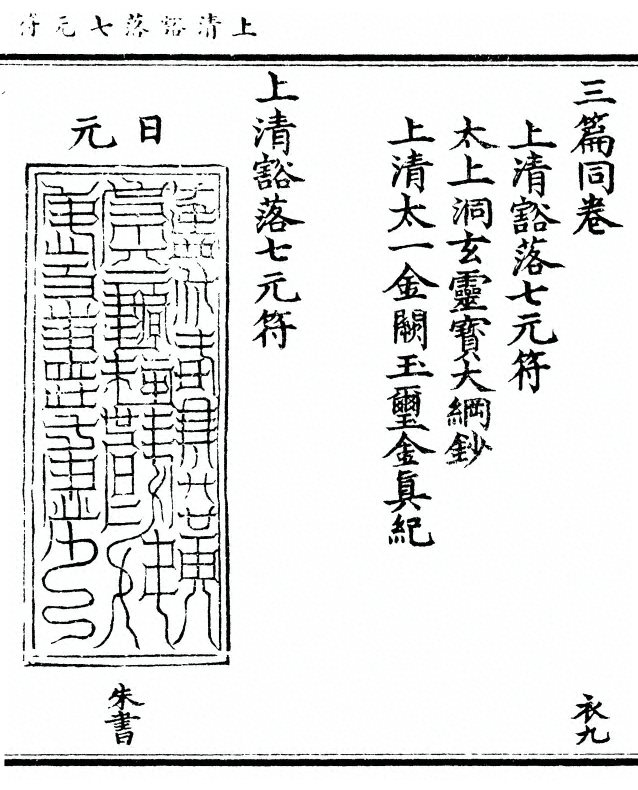 上清豁落七元符
三篇同卷
上清豁落七元符
太上洞玄靈寶大綱鈔
上清太一金闕玉璽金眞紀
衣九
上清豁落七元符
日元
朱書